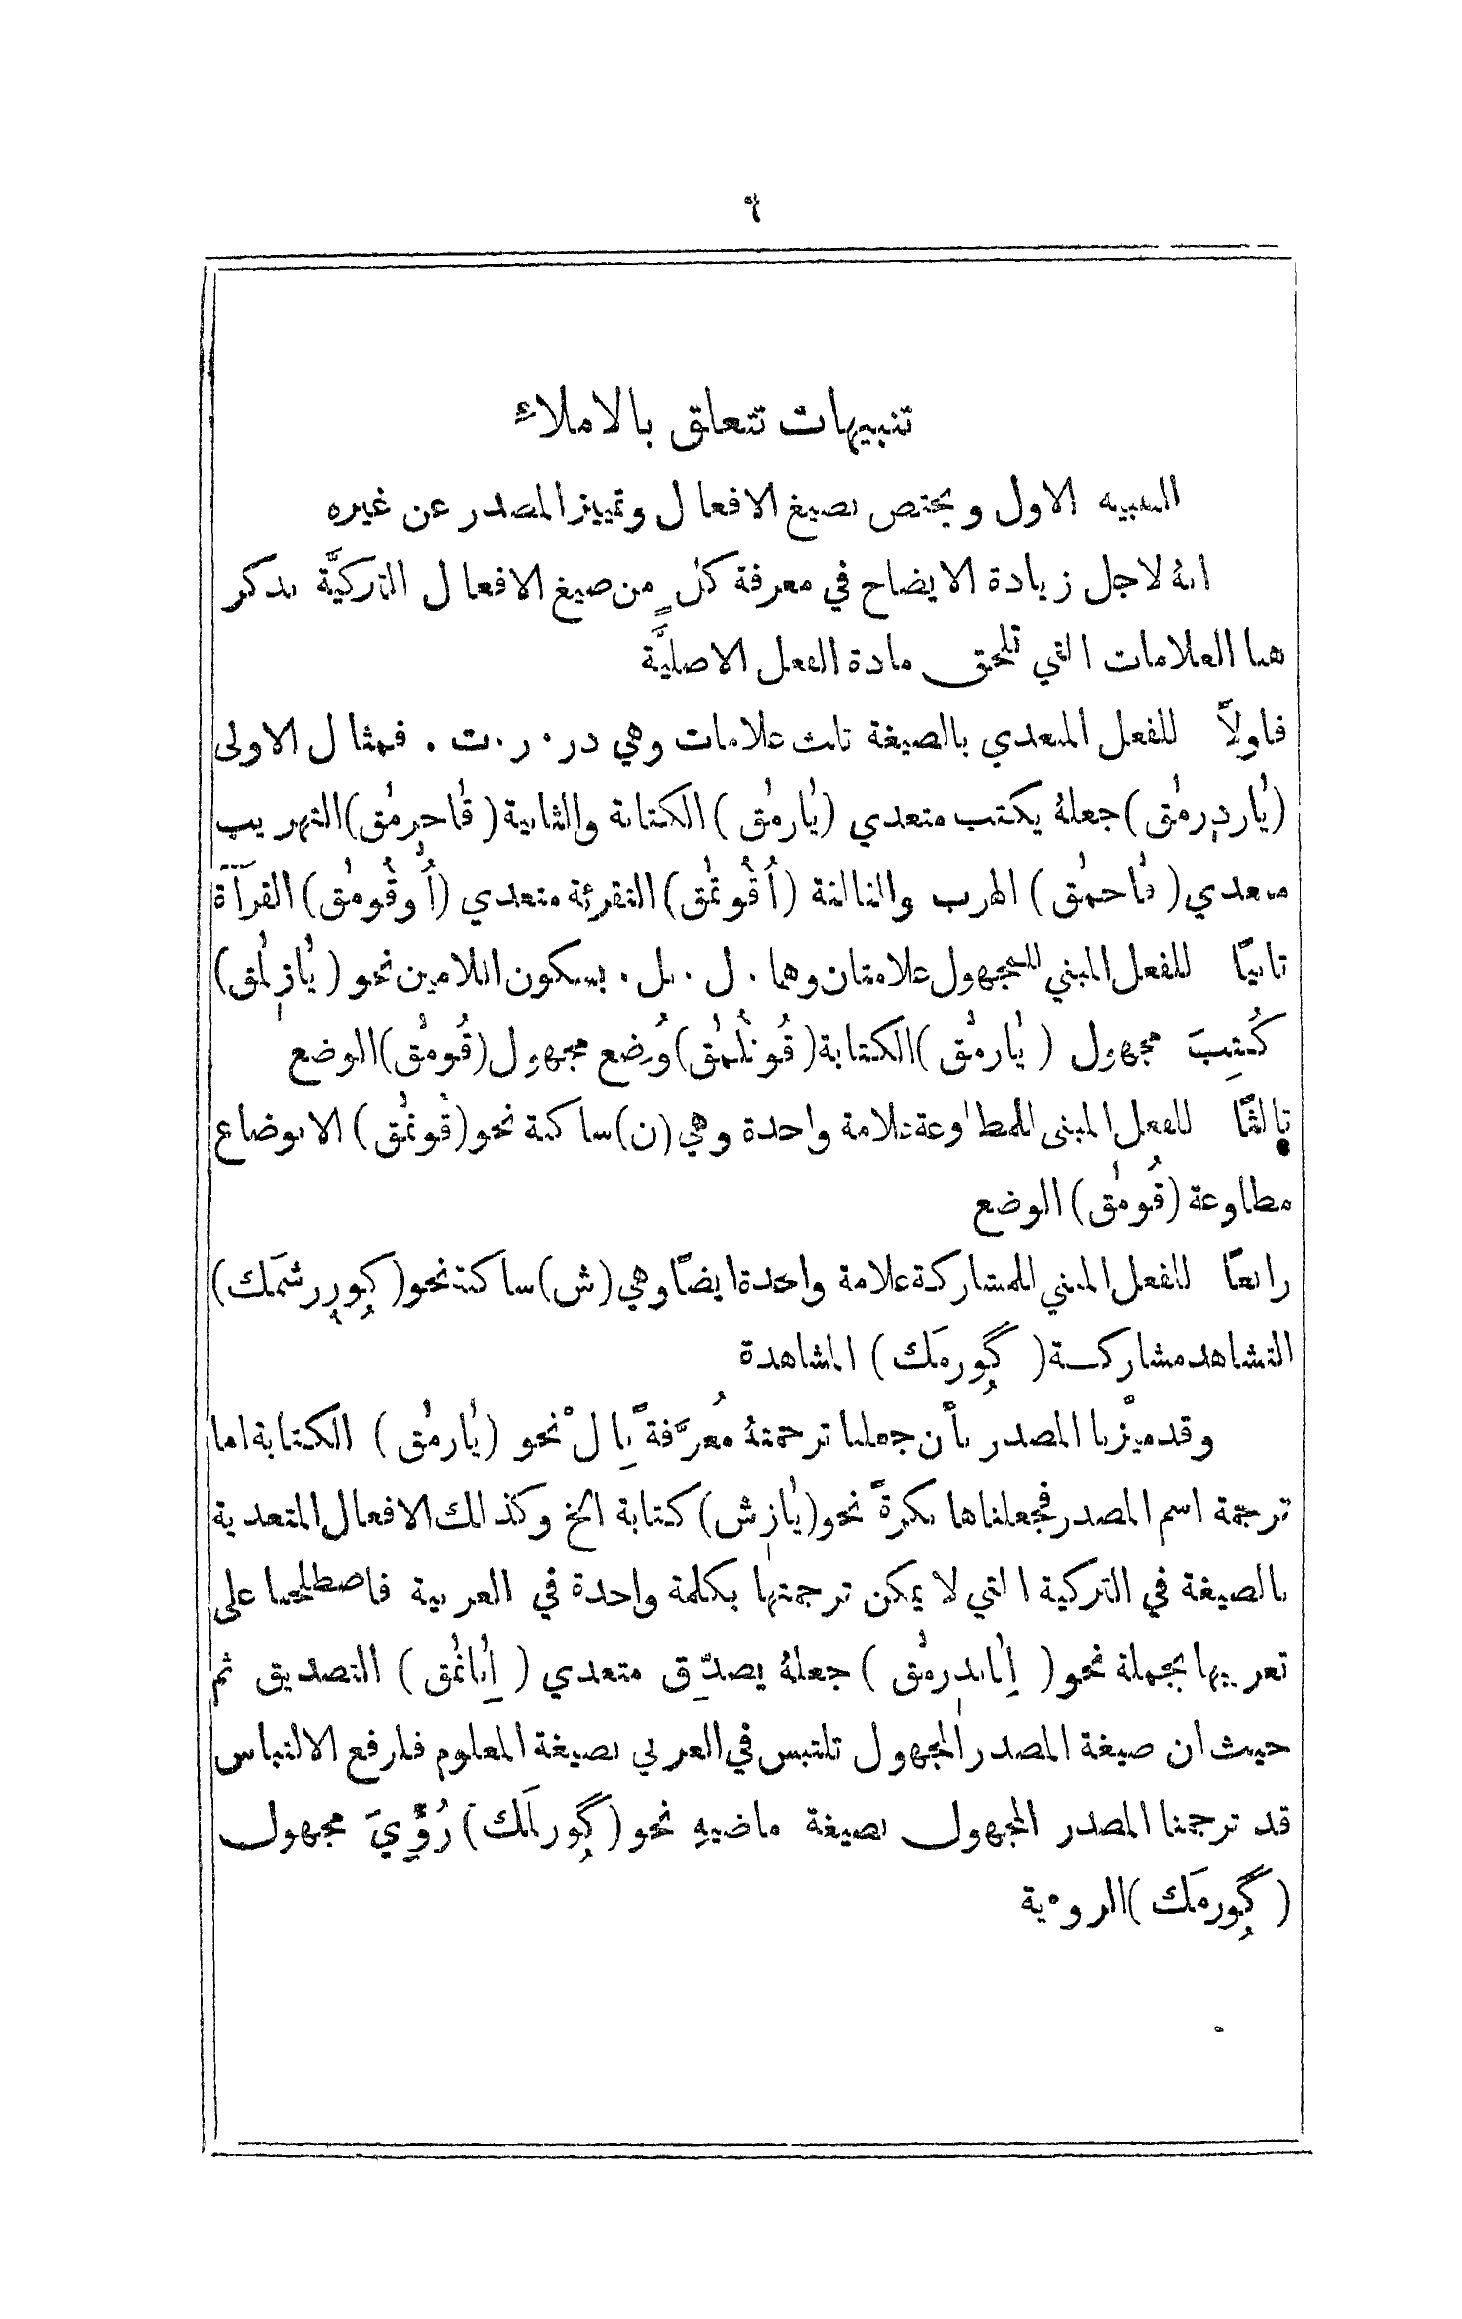 ٦
تنبيهات تتعلق بالاملاء
التنبيه الاول ويختص بصيغ الافعال وتمييز المصدر عن غيره
انهُ لاجل زيادة الايضاح في معرفة كلٍّ من صيغ الافعال التركيَّة نذكر
هنا العلامات التي تلحق مادة الفعل الاصليَّة
فاولاً للفعل المتعدي بالصيغة ثلث علامات وهي در٠ ر٠ت ٠ فمثال الاولى
(يَازدِرمَق) جعلهُ يكتب متعدي (يَازمَق) الكتابة والثانية (قَاچِرمَق) التهريب
متعدي (قَاچمَق) الهرب والثالثة (اُقُوتمَق) التقرئة متعدي (اُوقُومَق) القرآءَة
ثانيًا للفعل المبني للمجهول علامتان وهما ٠ ل ٠ نل ٠ بسكون اللامين نحو (يَازِلمَق)
كُتِبَ مجهول (يَازمَق) الكتابة (قُونُلمَق) وُضع مجهول (قُومَق) الوضع
ثالثًا للفعل المبني للمطاوعة علامة واحدة وهي (ن) ساكنة نحو (قُونمَق) الاتوضاع
مطاوعة (قُومَق) الوضع
رابعًا للفعل المبني للمشاركة علامة واحدة ايضًا وهي (ش) ساكنة نحو (كورِشمَك)
التشاهد مشاركة (گورمَك) المشاهدة
وقد ميَّزنا المصدر بأَن جعلنا ترجمتهُ مُعرَّفةً بِال نحو (يَازمَق) الكتابة اما
ترجمة اسم المصدر فجعلناها نكرةً نحو (يَازِش) كتابة الخ وكذالك الافعال المتعدية
بالصيغة في التركية التي لا يمكن ترجمتها بكلمة واحدة في العربية فاصطلحنا على
تعريبها بجملة نحو (اِنَاندِرمَق) جعلهُ يصدِّق متعدي (اِنَانمَق) التصديق ثم
حيث ان صيغة المصدر المجهول تلتبس في العربي بصيغة المعلوم فلرفع الالتباس
قد ترجمنا المصدر المجهول بصيغة ماضيهِ نحو (گورلمَك) رُؤِيَ مجهول
(گورمَك) الروءية